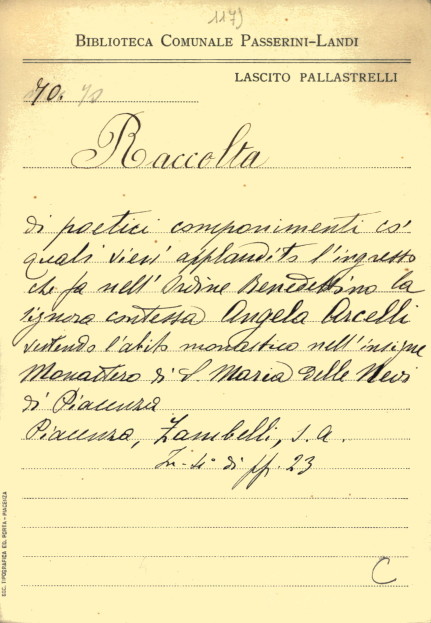 1179
BIBLIOTECA COMUNALE PASSERINI-LANDI
LASCITO PALLASTRELLI
70. 70
Raccolta
di poetici componimenti co'
quali vien' applaudito l'ingresso
che fa nell'Ordine Benedettino la
signora contessa Angela Arcelli
vestendo l'abito monastico nell'insigne
Monastero di S. Maria delle Nevi
di Piacenza
Piacenza, Zambelli, s. a.
In-4° di pp. 23
C
SOC. TIPOGRAFICA ED. PORTA - PIACENZA